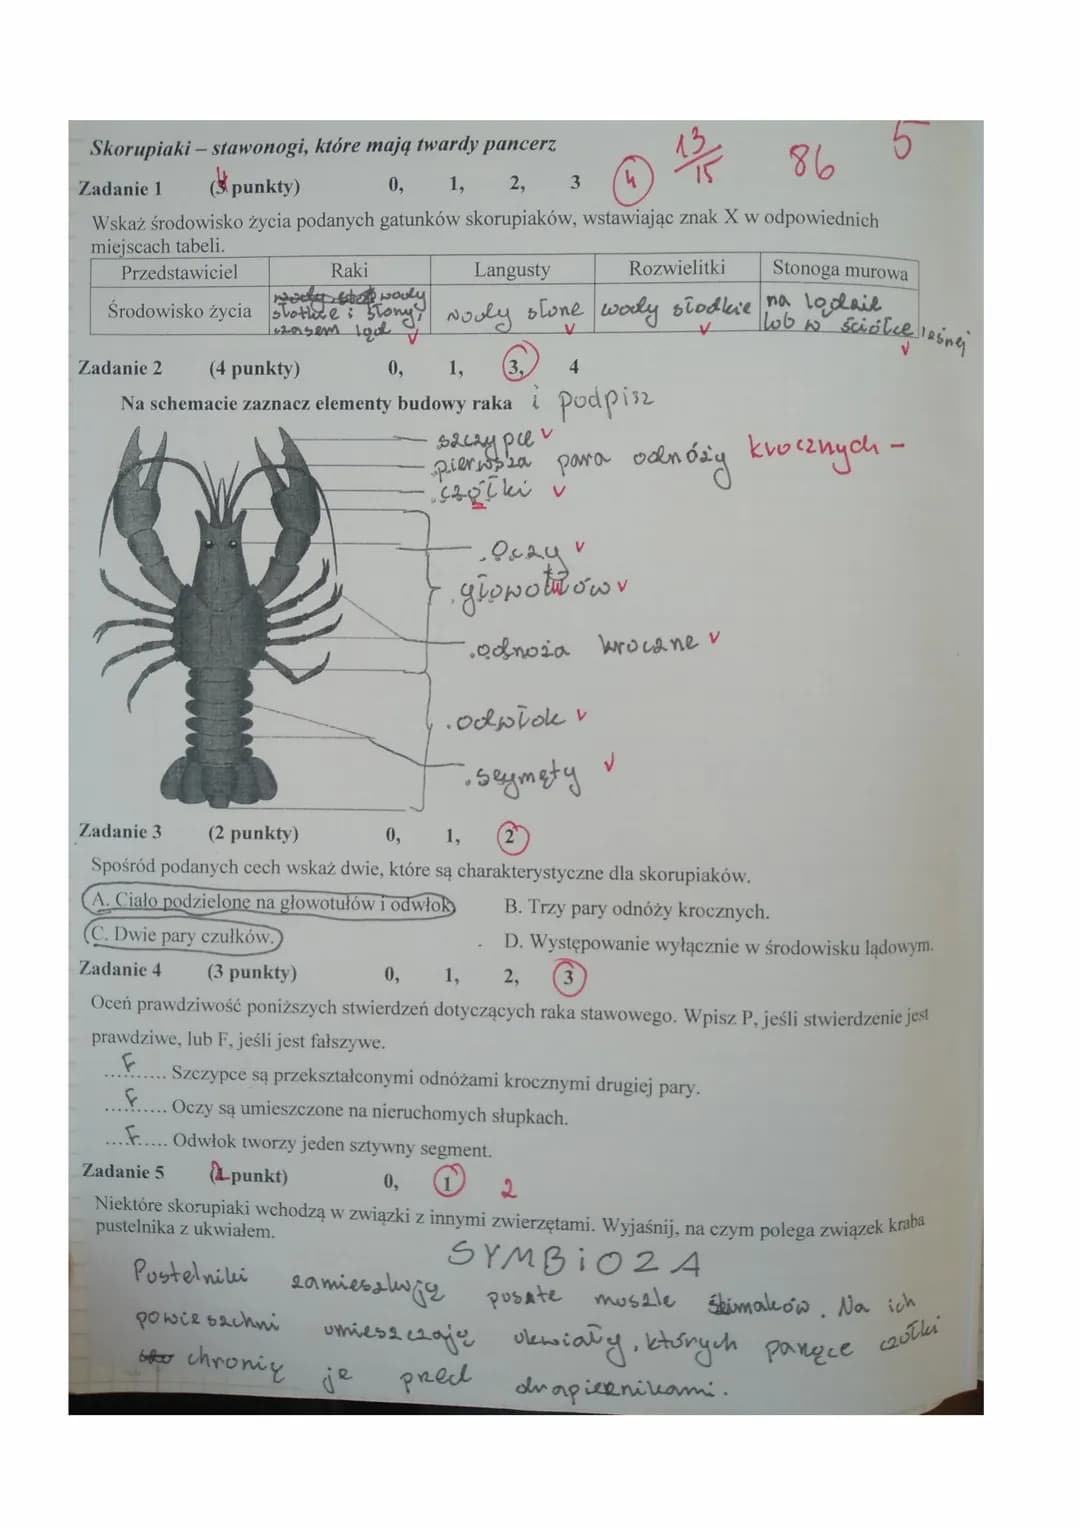 Skorupiaki – stawonogi, które mają twardy pancerz 13/15 86 5
Zadanie 1 (4 punkty) 0, 1, 2, 3 4
Wskaż środowisko życia podanych gatunków skorupiaków, wstawiając znak X w odpowiednich
miejscach tabeli.
Przedstawiciel Raki Langusty Rozwielitki Stonoga murowa
Środowisko życia wody słotkie i słony, czasem ląd wody słone wody słodkie na lądzie lub w ściółce leśnej
Zadanie 2 (4 punkty) 0, 1, 3, 4
Na schemacie zaznacz elementy budowy raka i podpisz
szczypce
pierwsza para odnóży krocznych -
czółki
oczy
głowotułów
odnoża kroczne
odwłok
segmęty
Zadanie 3 (2 punkty) 0, 1, 2
Spośród podanych cech wskaż dwie, które są charakterystyczne dla skorupiaków.
A. Ciało podzielone na głowotułów i odwłok B. Trzy pary odnóży krocznych.
C. Dwie pary czułków. D. Występowanie wyłącznie w środowisku lądowym.
Zadanie 4 (3 punkty) 0, 1, 2, 3
Oceń prawdziwość poniższych stwierdzeń dotyczących raka stawowego. Wpisz P, jeśli stwierdzenie jest
prawdziwe, lub F, jeśli jest fałszywe.
....F.... Szczypce są przekształconymi odnóżami krocznymi drugiej pary.
....F.... Oczy są umieszczone na nieruchomych słupkach.
....F.... Odwłok tworzy jeden sztywny segment.
Zadanie 5 (2 punkt) 0, 1 2
Niektóre skorupiaki wchodzą w związki z innymi zwierzętami. Wyjaśnij, na czym polega związek kraba
pustelnika z ukwiałem.
SYMBiOZA
Pustelniki zamieszkują puste muszle ślimaków. Na ich
powierzchni umieszczają ukwiały, których parzące czółki
chronią je przed drapieżnikami.